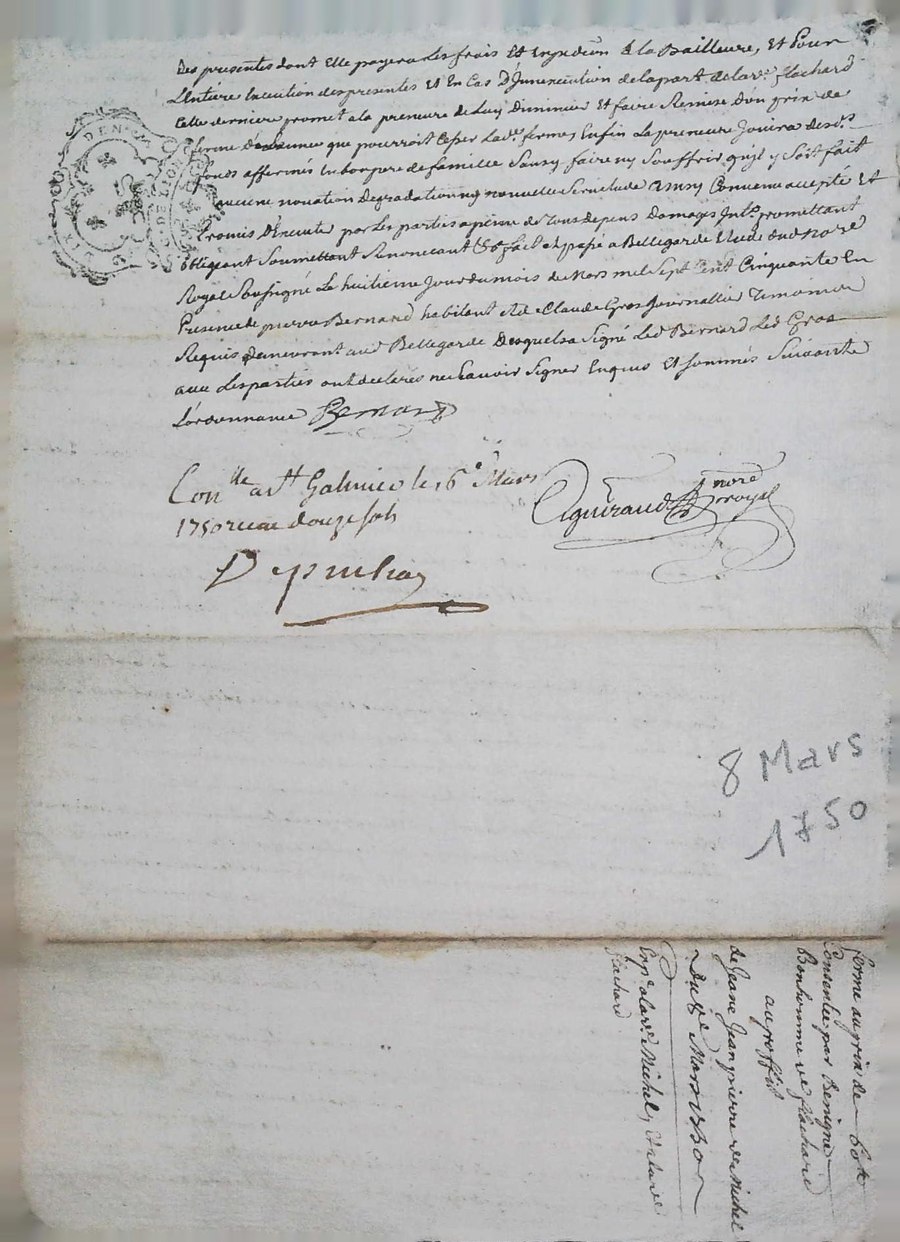 Des presentes dont Elle payera les frais Et Expedi͠on a la Bailleure, Et Pour
L'Entiere Execution des presentes Et En Cas D'Innexecution de la part de lad. ve. flachard
Cette derniere promet a la preneure de Luy Diminuer Et faire Remise D'un prix de
ferme que pourroit lad. fermes Enfin La preneure Jouira desds.
fonds affermés En bon pere de famille Sans y faire ny Souffrir quil y Soit fait
aucune novation Degradation ny nouvelle Servitude ainsy Convenu accepté Et
Promis D'Executer par les parties a peine de tous depens Domages Intts. promettant
obligeant Soumettant Renoncant &a. fait et passé a Bellegarde Etude dud Noꝛe
Royal Soussigné Le huitieme Jour du mois de Mars mil Sept Cent Cinquante En
Presence de pierre Bernard habitant et de Claude Gros Journallier Temoins
Requis Demeurant aud Bellegarde Desquels a Signé Led Bernard Led Gros
aux Les parties ont declaré ne Scavoir Signer Enquis Et Sommés Suivant
L'ordonnance Bernard
Conlle. a St. Galmier le 16e. Mars
1750 recu douze sols
Aguiraud noꝛe royal
GEN DE LION
8 Mars
1750
ferme au prix de 60#
Consentie par Benigne
Bonhomme ve. flachard
au proffit
de Jeane Jean pierre ve. Michel
Du 8e. Mars 1750
Expn. a la ve. Michel,
flachard